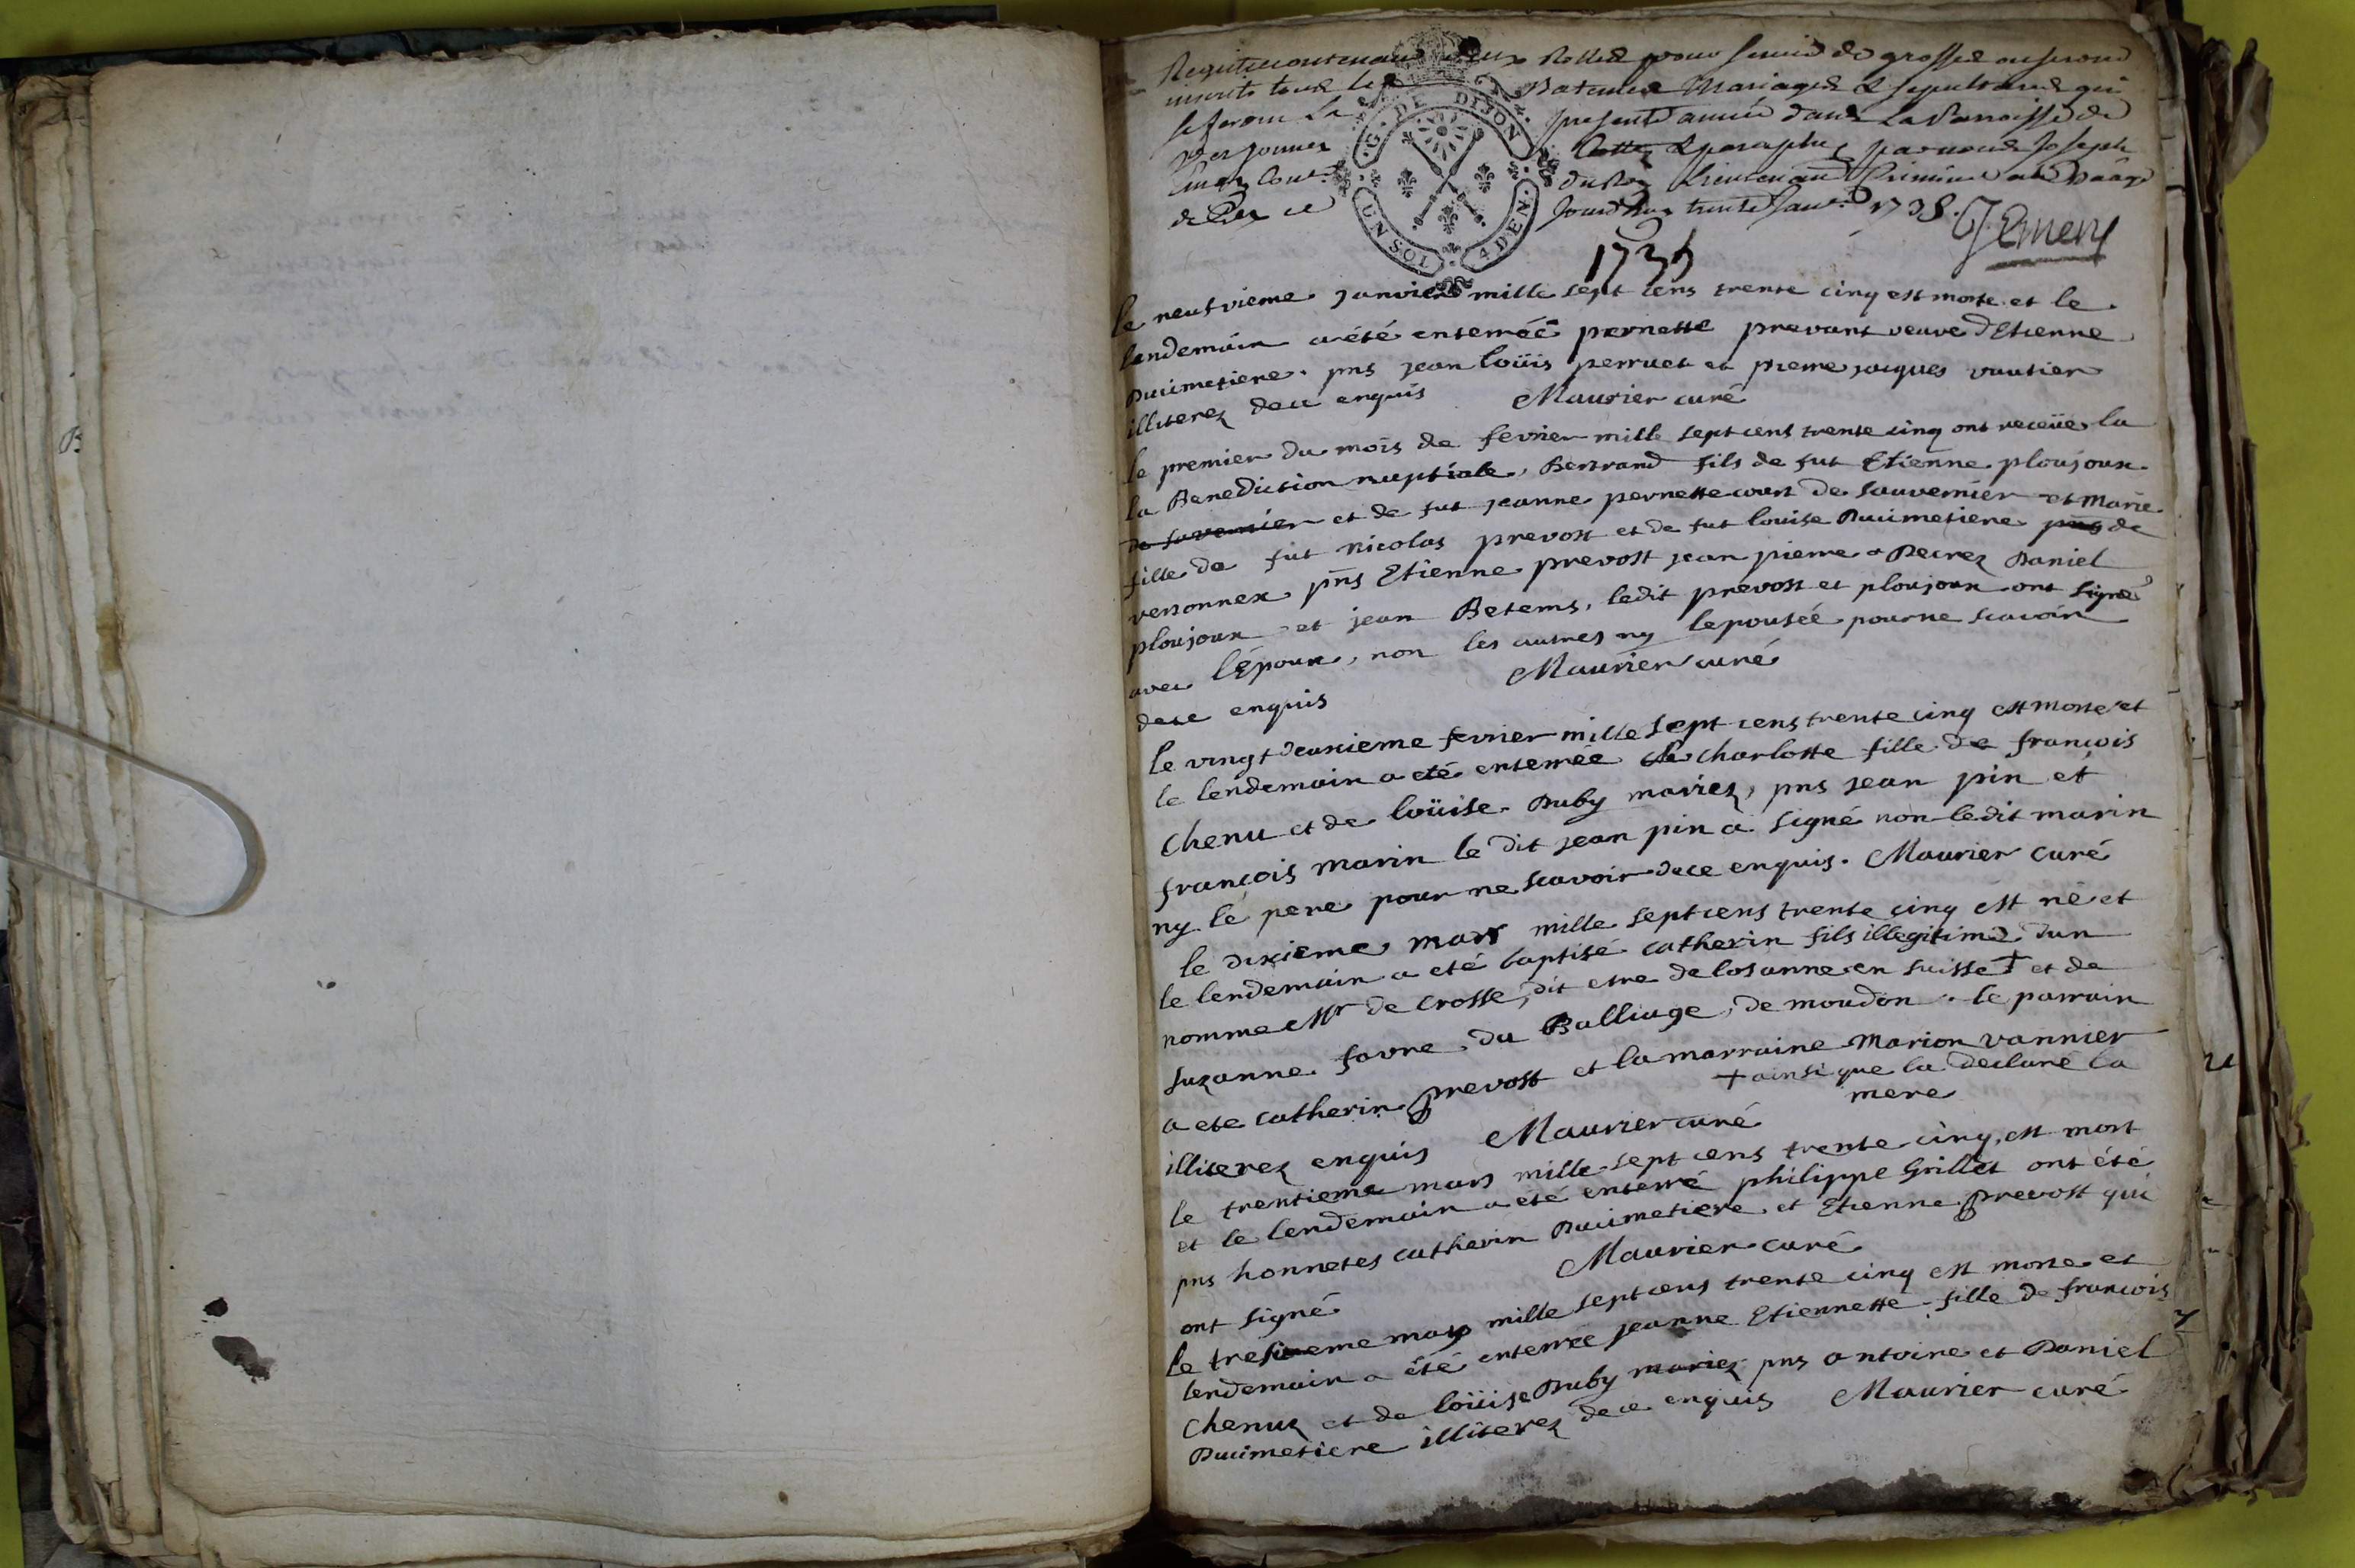 Registre contenant deux Rolles pour servir de grosse ou seront
inscrits tous les Batemes Mariages & sepultures qui
se feront la presente année dans La Paroisse de
Versonnex Cottez & paraphez par nous Joseph
Emery Cons.er du Roy Lieutenant Criminel au Baage
de Gex ce jourdhuy trente Janv.er 1735. J. Emery
G. DE DIJON
UN SOL 4 DEN.
1735
le neufvieme janvier mille sept cens trente cinq est morte et le
lendemain a été enterrée pernette prevost veuve d'Etienne
Ducimetiere. pns jean loüis perruet et pierre jacques vautier
illiterez dece enquis Maurier curé
le premier du mois de fevrier mille sept cens trente cinq ont receüe la
la Benediction nuptiale, Bertrand fils de fut Etienne ploujoux
de sauvernier et de fut jeanne pernette court de sauvernier et Marie
fille de fut nicolas prevost et de fut louise Ducimetiere pns de
versonnex pns Etienne prevost jean pierre Decrez Daniel
ploujoux et jean Betems, ledit prevost et ploujoux ont signé
avec l'Epoux, non les autres ny lepousée pour ne scavoir
dece enquis Maurier curé
le vingt deuxieme fevrier mille sept cens trente cinq est morte et
le lendemain a eté enterrée Charlotte fille de françois
Chenu et de loüise Duby mariez, pns jean pin et
françois marin le dit jean pin a signé non ledit marin
ny le pere pour ne scavoir dece enquis. Maurier curé
le dixieme mars mille sept cens trente cinq est né et
le lendemain a eté baptisé catherin fils illegitime d'un
nomme Mr de Crosse, dit etre de losanne en suisse + et de
suzanne favre du Balliage de moudon. le parrain
a ete catherin prevost et la marraine Marion vannier
+ ainsi que la declaré la
mere
illiterez enquis Maurier curé
le trentieme mars mille sept cens trente cinq, est mort
et le lendemain a été enterré philippe Grillet ont été
pns honnetes catherin Ducimetiere et Etienne prevost qui
ont signé Maurier curé
le tresieme may mille sept cens trente cinq est morte et
lendemain a été enterrée jeanne Etiennette fille de françois
Chenuz et de loüise Duby mariez pns antoine et Daniel
Ducimetiere illiterez dece enquis Maurier curé